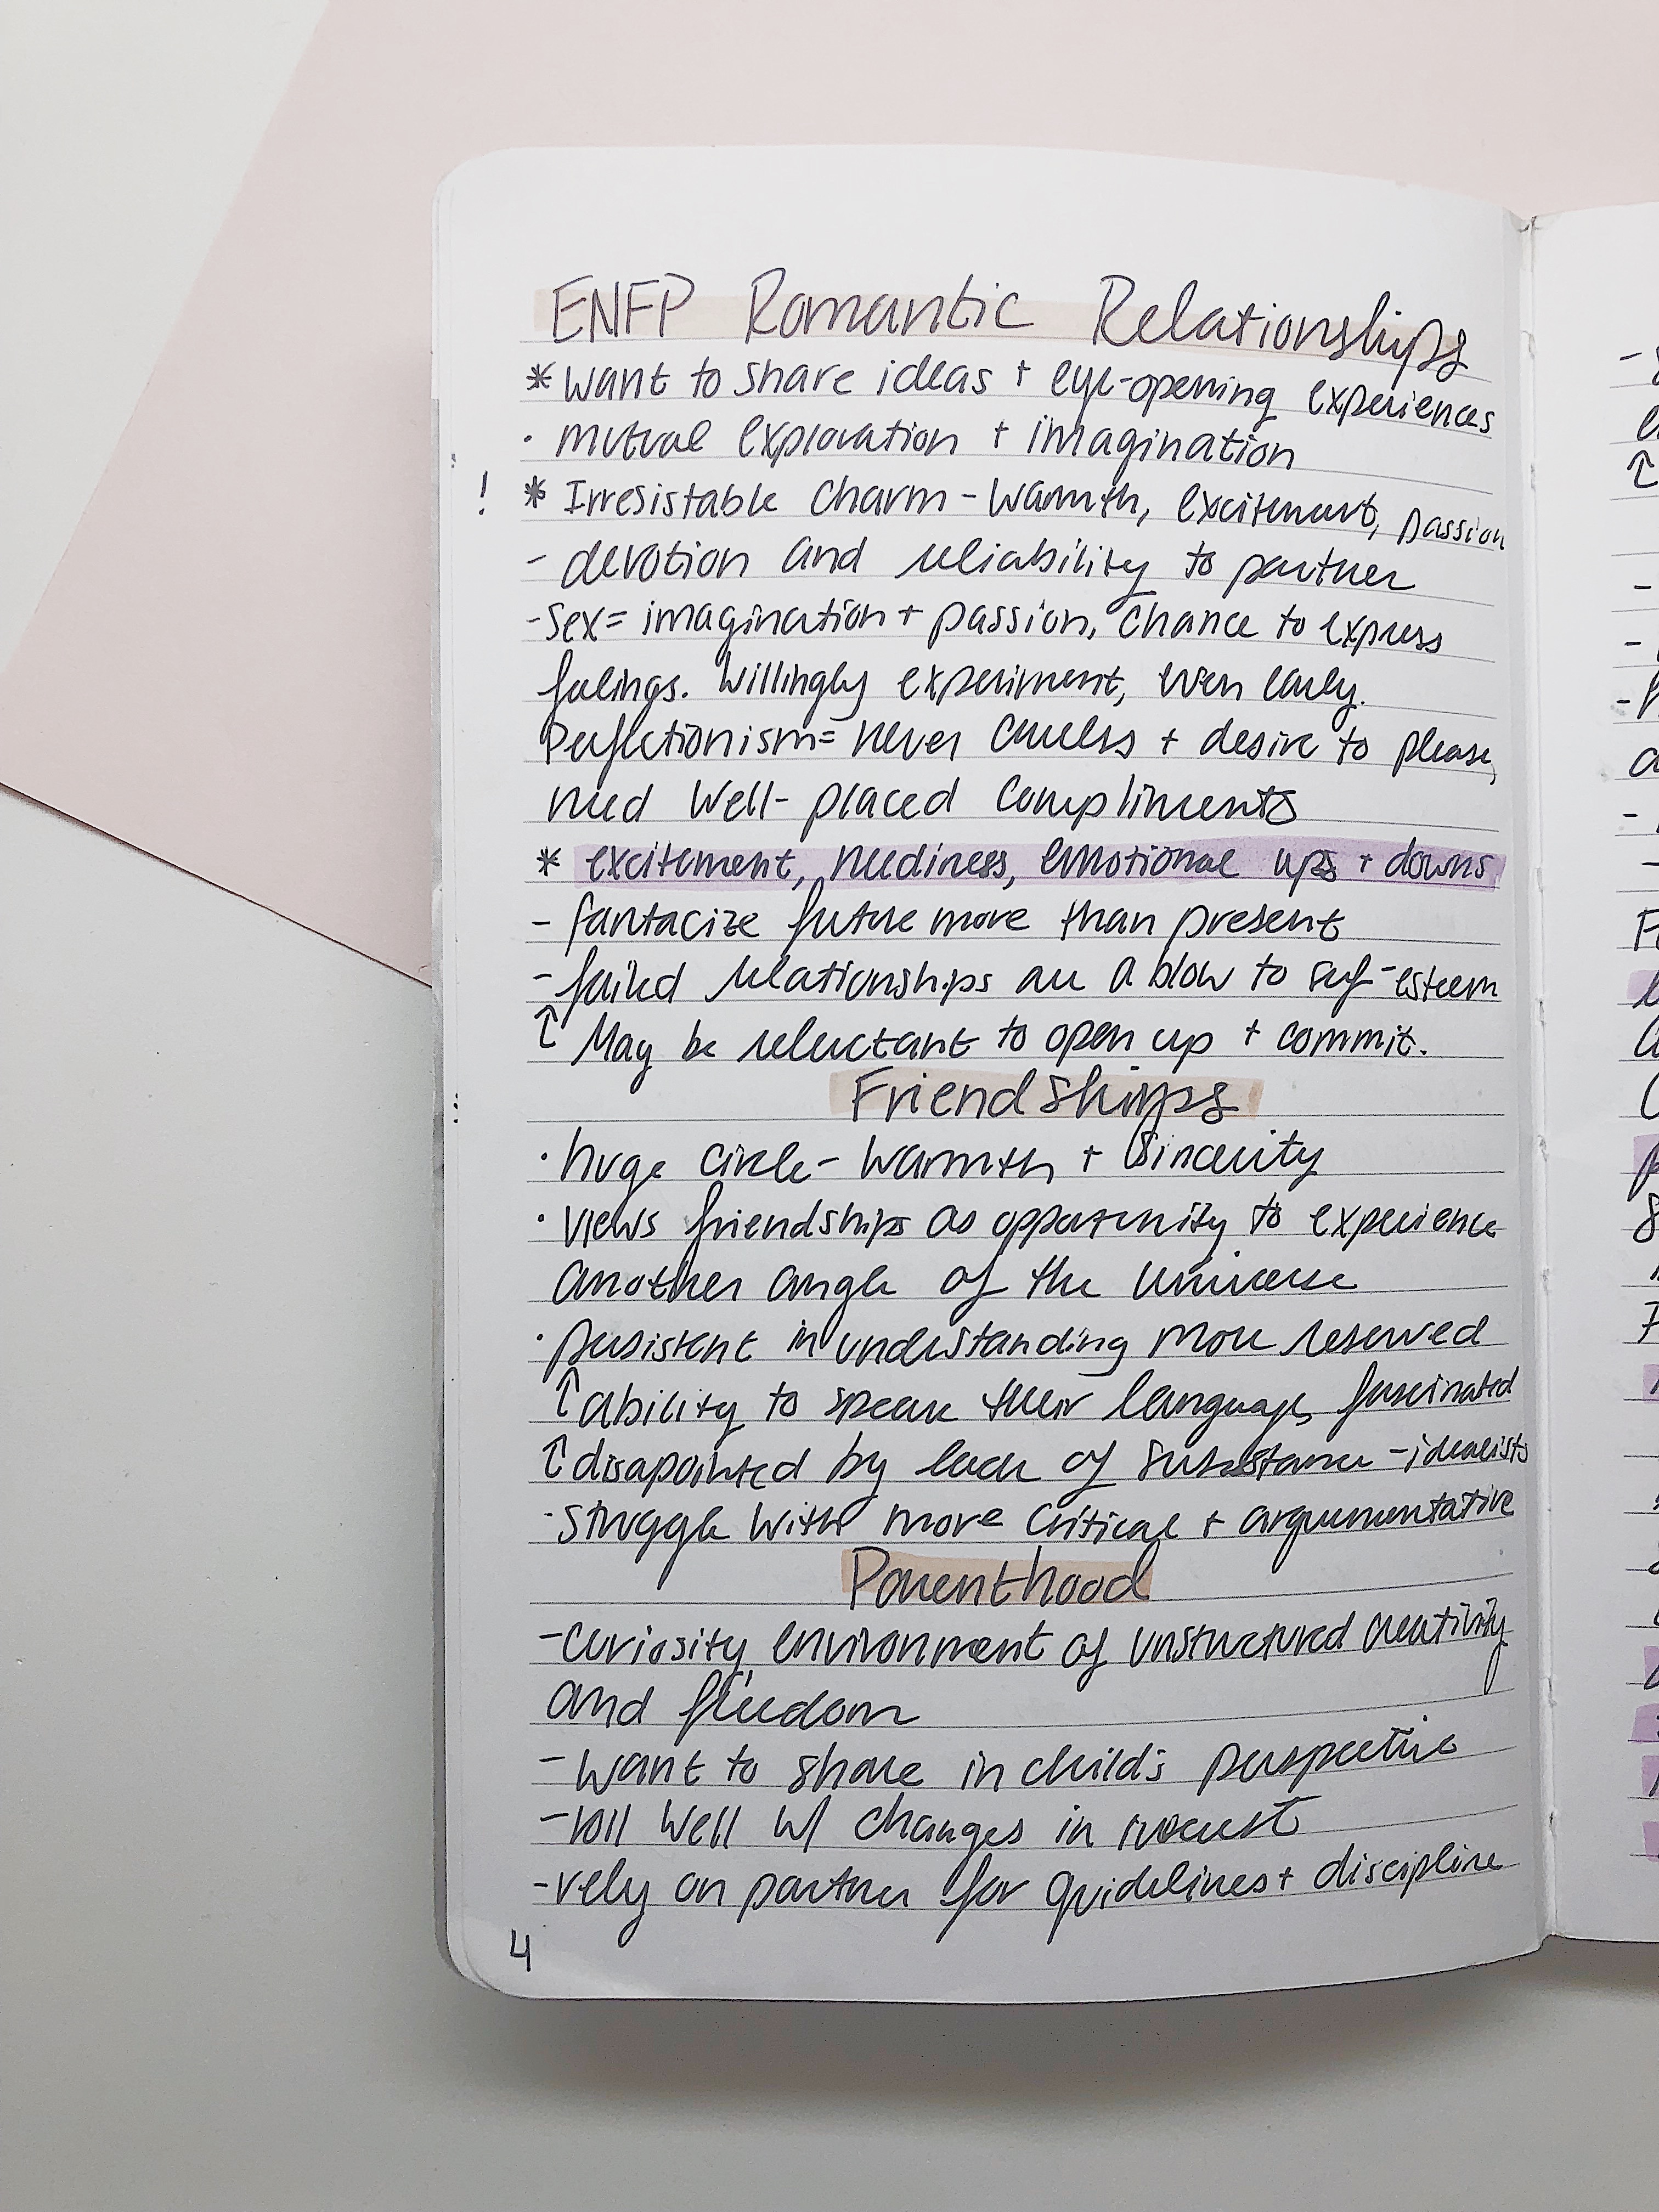 ENFP Romantic Relationships
* Want to share ideas + eye-opening experiences
· mutual exploration + imagination
! * Irresistable charm - Warmth, excitement, passion
- devotion and reliability to partner
- Sex = imagination + passion, chance to express
feelings. Willingly experiment, even early.
Perfectionism = never careless + desire to please,
need well-placed compliments
* excitement, neediness, emotional ups + downs
- fantacize future more than present
- failed relationships are a blow to self-esteem
↑ May be reluctant to open up + commit.
Friendships
· huge circle - Warmth + Sincerity
· views friendships as opportunity to experience
another angle of the universe
· persistent in understanding more reserved
↑ ability to speak their language, fascinated
↑ disapointed by lack of substance - idealists
· Struggle with more critical + argumentative
Parenthood
- Curiosity, environment of unstructured creativity
and freedom
- Want to share in child's perspective
- roll well w/ changes in
- rely on partner for guidelines + discipline
4